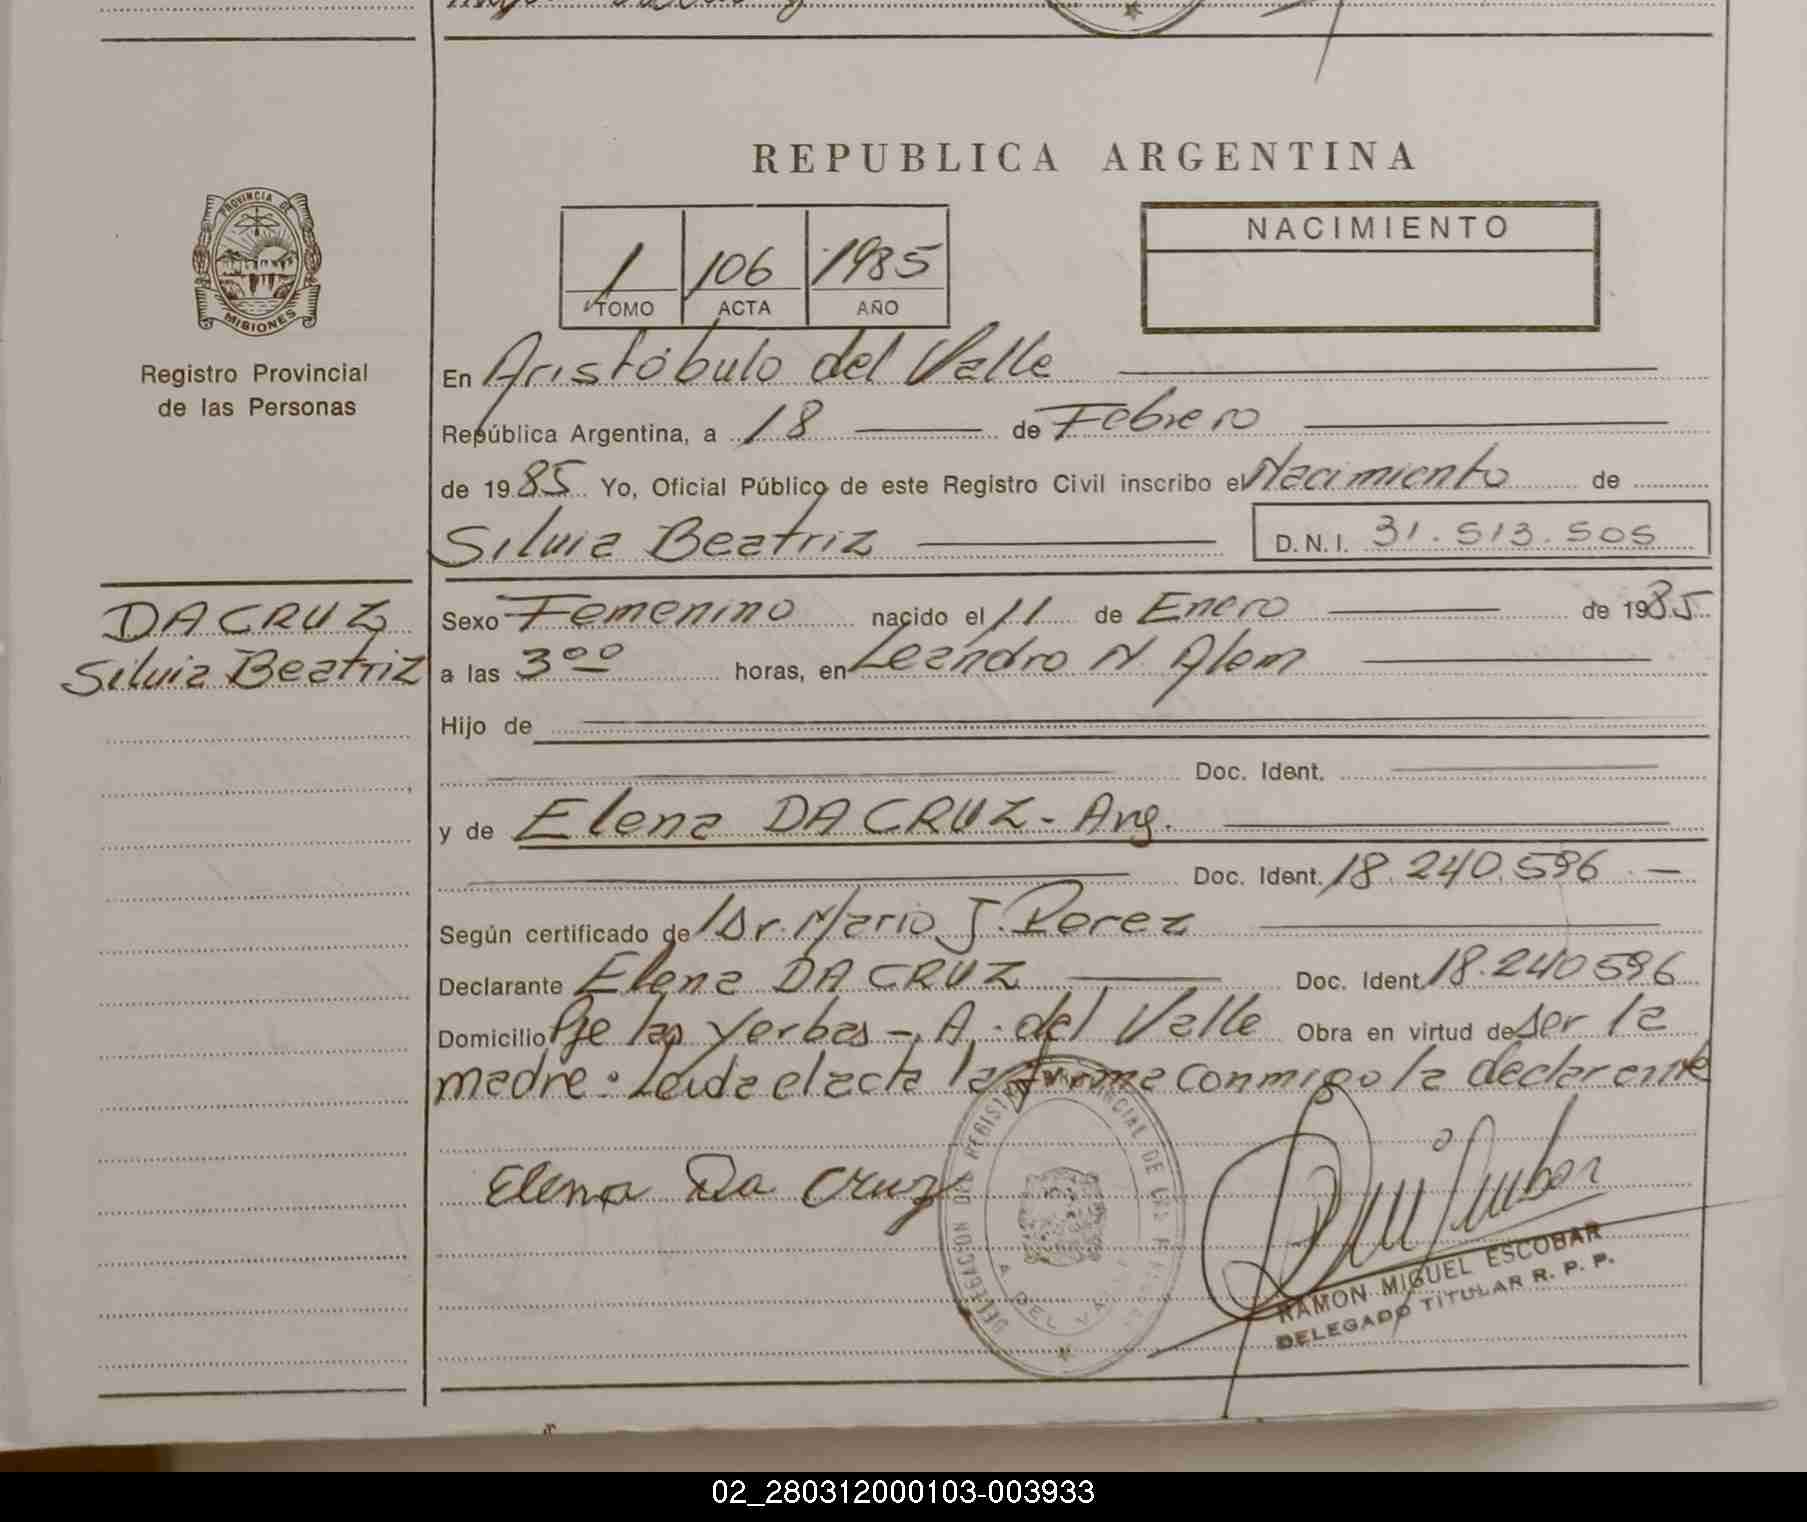 REPUBLICA ARGENTINA
PROVINCIA DE
MISIONES
Registro Provincial
de las Personas
1 106 1985
TOMO ACTA AÑO
NACIMIENTO
En Aristóbulo del Valle
República Argentina, a 18 de Febrero
de 1985 Yo, Oficial Público de este Registro Civil inscribo el Nacimiento de
Silvia Beatriz D.N.I. 31.513.505
DA CRUZ
Silvia Beatriz
Sexo Femenino nacido el 11 de Enero de 1985
a las 3 00 horas, en Leandro N. Alem
Hijo de
Doc. Ident.
y de Elena DA CRUZ - Arg.
Doc. Ident. 18.240.596 -
Según certificado de Dr. Mario J. Perez
Declarante Elena DA CRUZ Doc. Ident 18.240596
Domicilio Pje las Yerbas - A. del Valle Obra en virtud de ser la
madre. Leida el acta la firma conmigo la declarante
Elena Da Cruz
DELEGACION DEL REGISTRO PROVINCIAL DE LAS
A. DEL VALLE
RAMON MIGUEL ESCOBAR
DELEGADO TITULAR R. P. P.
02_280312000103-003933